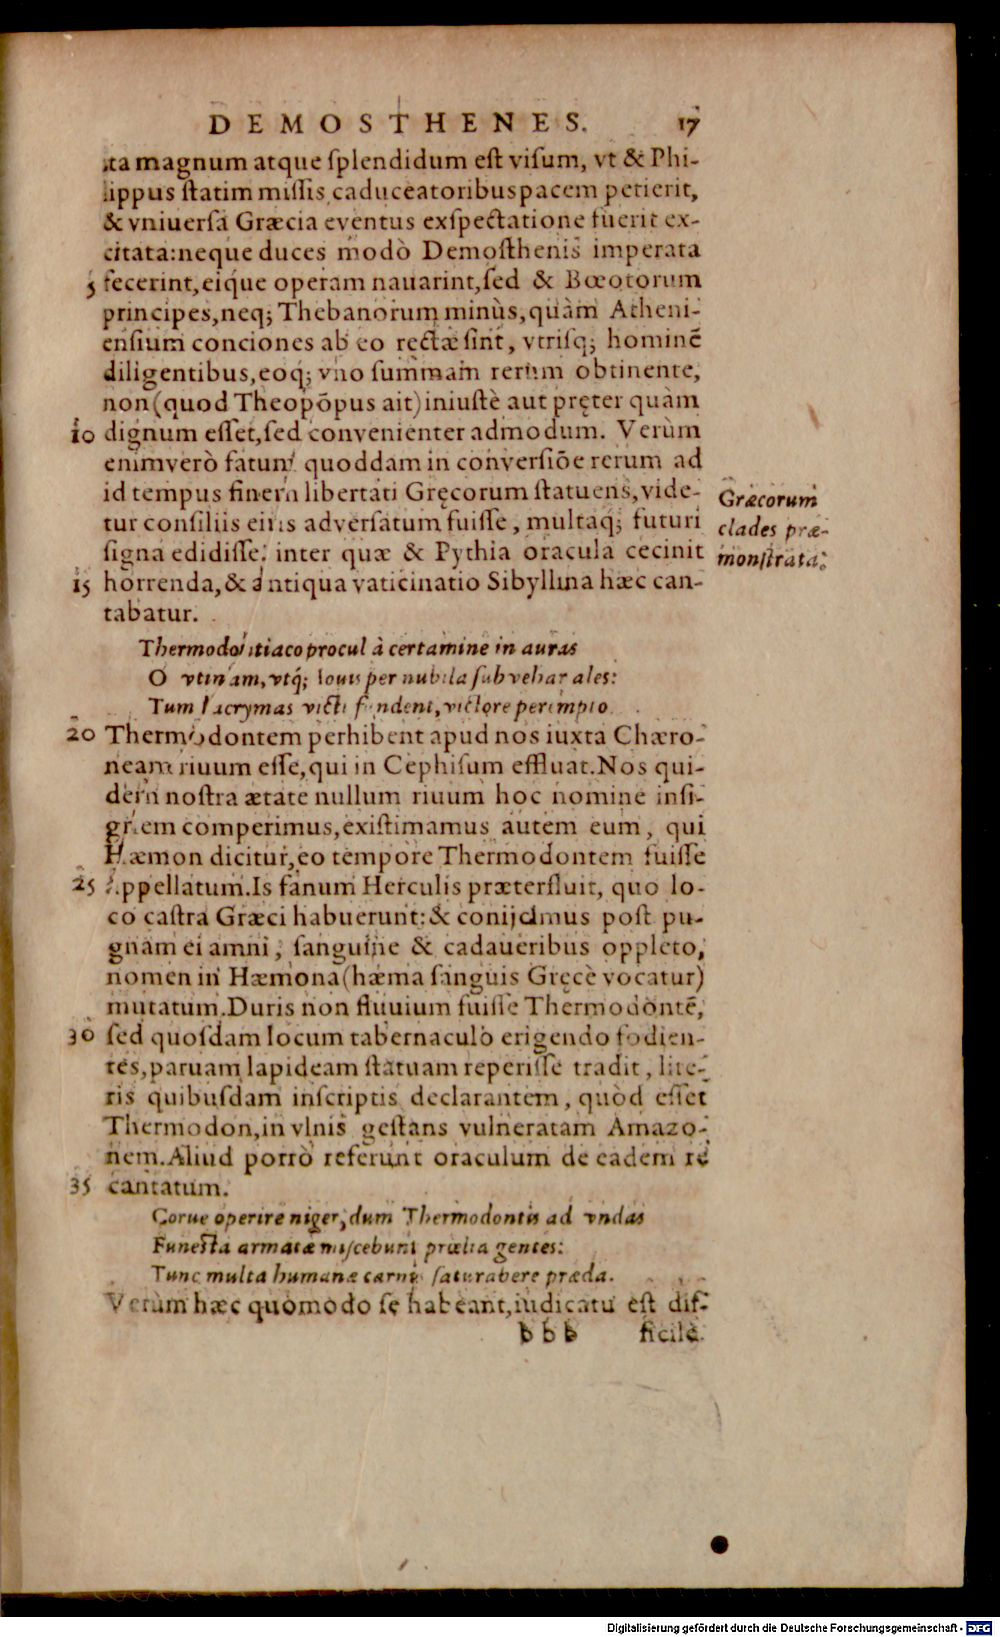 DEMOSTHENES. 17
ita magnum atque splendidum est visum, vt & Phi-
lippus statim missis caduceatoribus pacem petierit,
& vniuersa Græcia eventus exspectatione fuerit ex-
citata: neque duces modò Demosthenis imperata
5 fecerint, eique operam nauarint, sed & Bœotorum
principes, neq; Thebanorum minùs, quàm Atheni-
ensium conciones ab eo rectæ sint, vtrisq; hominē
diligentibus, eoq; vno summam rerum obtinente,
non (quod Theopōpus ait) iniustè aut pręter quàm
10 dignum esset, sed convenienter admodum. Verùm
enimverò fatum quoddam in conversiōe rerum ad
id tempus finem libertati Gręcorum statuens, vide-
tur consiliis eius adversatum fuisse, multaq; futuri
signa edidisse: inter quæ & Pythia oracula cecinit
15 horrenda, & antiqua vaticinatio Sibyllina hæc can-
tabatur.
Græcorum
clades præ-
monstrata.
Thermodontiaco procul à certamine in auras
O vtinam, vtq; Iouis per nubila subvehar ales:
Tum lacrymas victi fundent, victore perempto.
20 Thermodontem perhibent apud nos iuxta Chæro-
neam riuum esse, qui in Cephisum effluat. Nos qui-
dem nostra ætate nullum riuum hoc nomine insi-
gnem comperimus, existimamus autem eum, qui
Hæmon dicitur, eo tempore Thermodontem fuisse
25 appellatum. Is fanum Herculis præterfluit, quo lo-
co castra Græci habuerunt: & conijcimus post pu-
gnam ei amni, sanguine & cadaueribus oppleto,
nomen in Hæmona (hæma sanguis Gręcè vocatur)
mutatum. Duris non fluuium fuisse Thermodontē,
30 sed quosdam locum tabernaculo erigendo fodien-
tes, paruam lapideam statuam reperisse tradit, lite-
ris quibusdam inscriptis declarantem, quòd esset
Thermodon, in vlnis gestans vulneratam Amazo-
nem. Aliud porrò referunt oraculum de eadem re
35 cantatum.
Corue operire niger, dum Thermodontis ad vndas
Funesta armatæ miscebunt prælia gentes:
Tunc multa humanæ carnis saturabere præda.
Verùm hæc quomodo se habeant, iudicatu est dif-
bbb ficile.
Digitalisierung gefördert durch die Deutsche Forschungsgemeinschaft - DFG